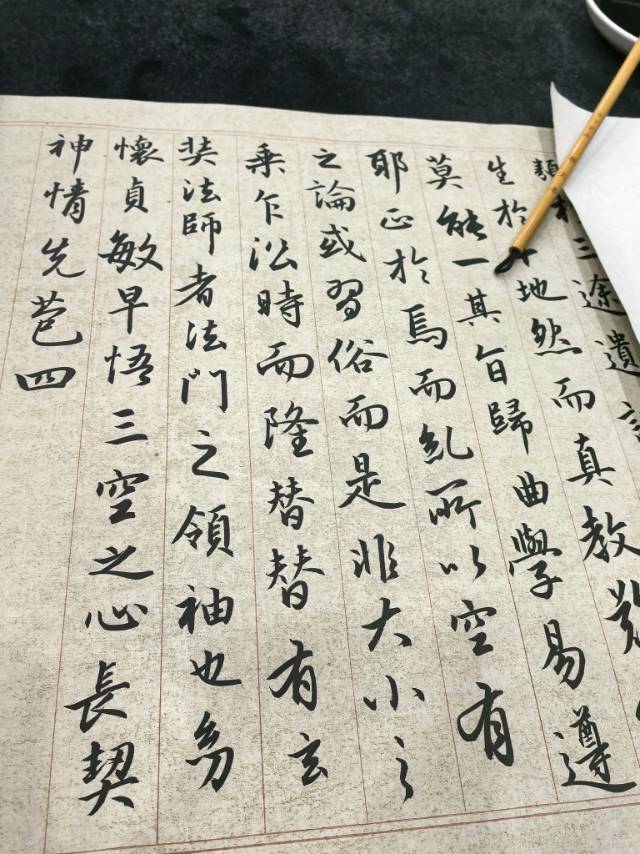 類於三途遺
生於地然而真教難
莫能一其旨歸曲學易遵
耶正於焉而糺所以空有
之論或習俗而是非大小之
乘乍沿時而隆替替有玄
奘法師者法門之領袖也幼
懷貞敏早悟三空之心長契
神情先苞四